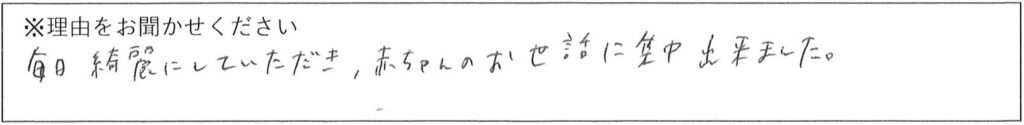 ※理由をお聞かせください
毎日 綺麗にしていただき,赤ちゃんのお世話に集中出来ました。